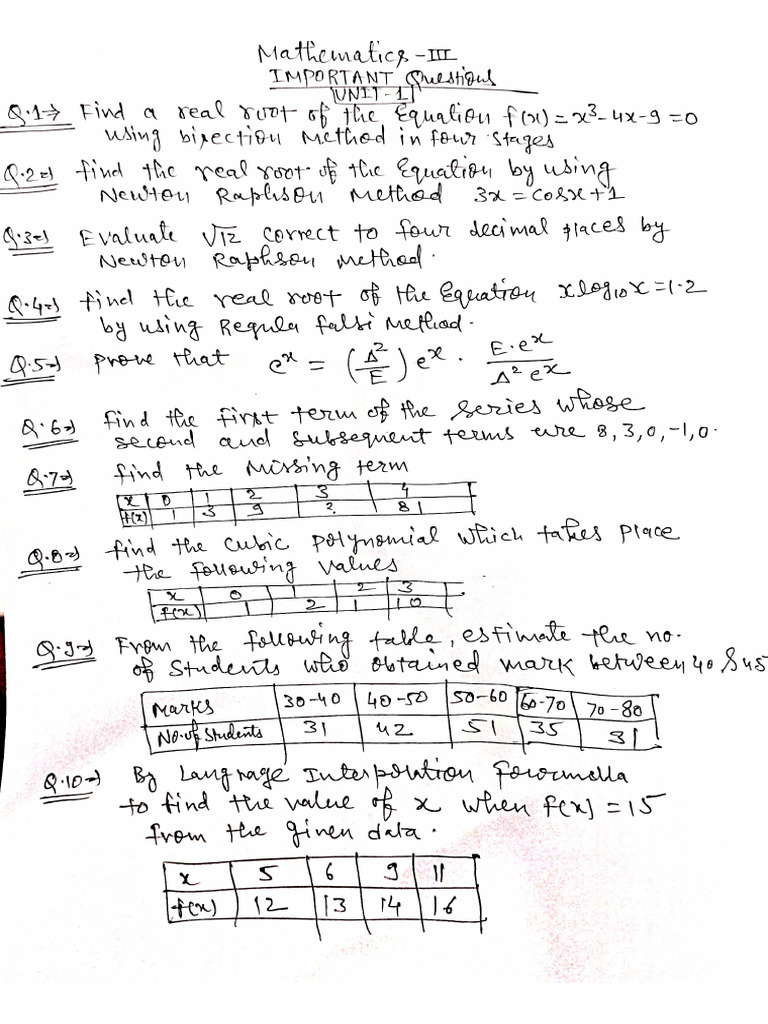 Mathematics - III
IMPORTANT Questions
UNIT-1
Q.1⇒ Find a real root of the Equation f(x) = x³-4x-9=0
using bisection Method in four stages
Q.2⇒ find the real root of the Equation by using
Newton Raphson Method 3x = cosx+1
Q.3⇒ Evaluate √12 correct to four decimal places by
Newton Raphson Method.
Q.4⇒ find the real root of the Equation xlog₁₀x=1.2
by using Regula falsi Method.
Q.5⇒ prove that eˣ = (Δ²/E) eˣ · E·eˣ/Δ² eˣ
Q.6⇒ find the first term of the series whose
second and subsequent terms are 8, 3, 0, -1, 0.
Q.7⇒ find the Missing term
x 0 1 2 3 4
f(x) 1 3 9 ? 81
Q.8⇒ find the cubic polynomial which takes place
the following values
x 0 1 2 3
f(x) 1 2 1 10
Q.9⇒ From the following table, estimate the no.
of students who obtained mark between 40 & 45
Marks 30-40 40-50 50-60 60-70 70-80
No. of students 31 42 51 35 31
Q.10⇒ By Langrage Interpolution Forormella
to find the value of x when f(x) = 15
from the given data.
x 5 6 9 11
f(x) 12 13 14 16